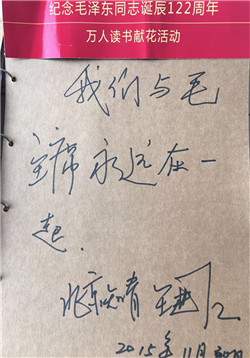 纪念毛泽东同志诞辰122周年
万人读书献花活动
我们与毛
主席永远在一
起.
北京知青
2015年11月